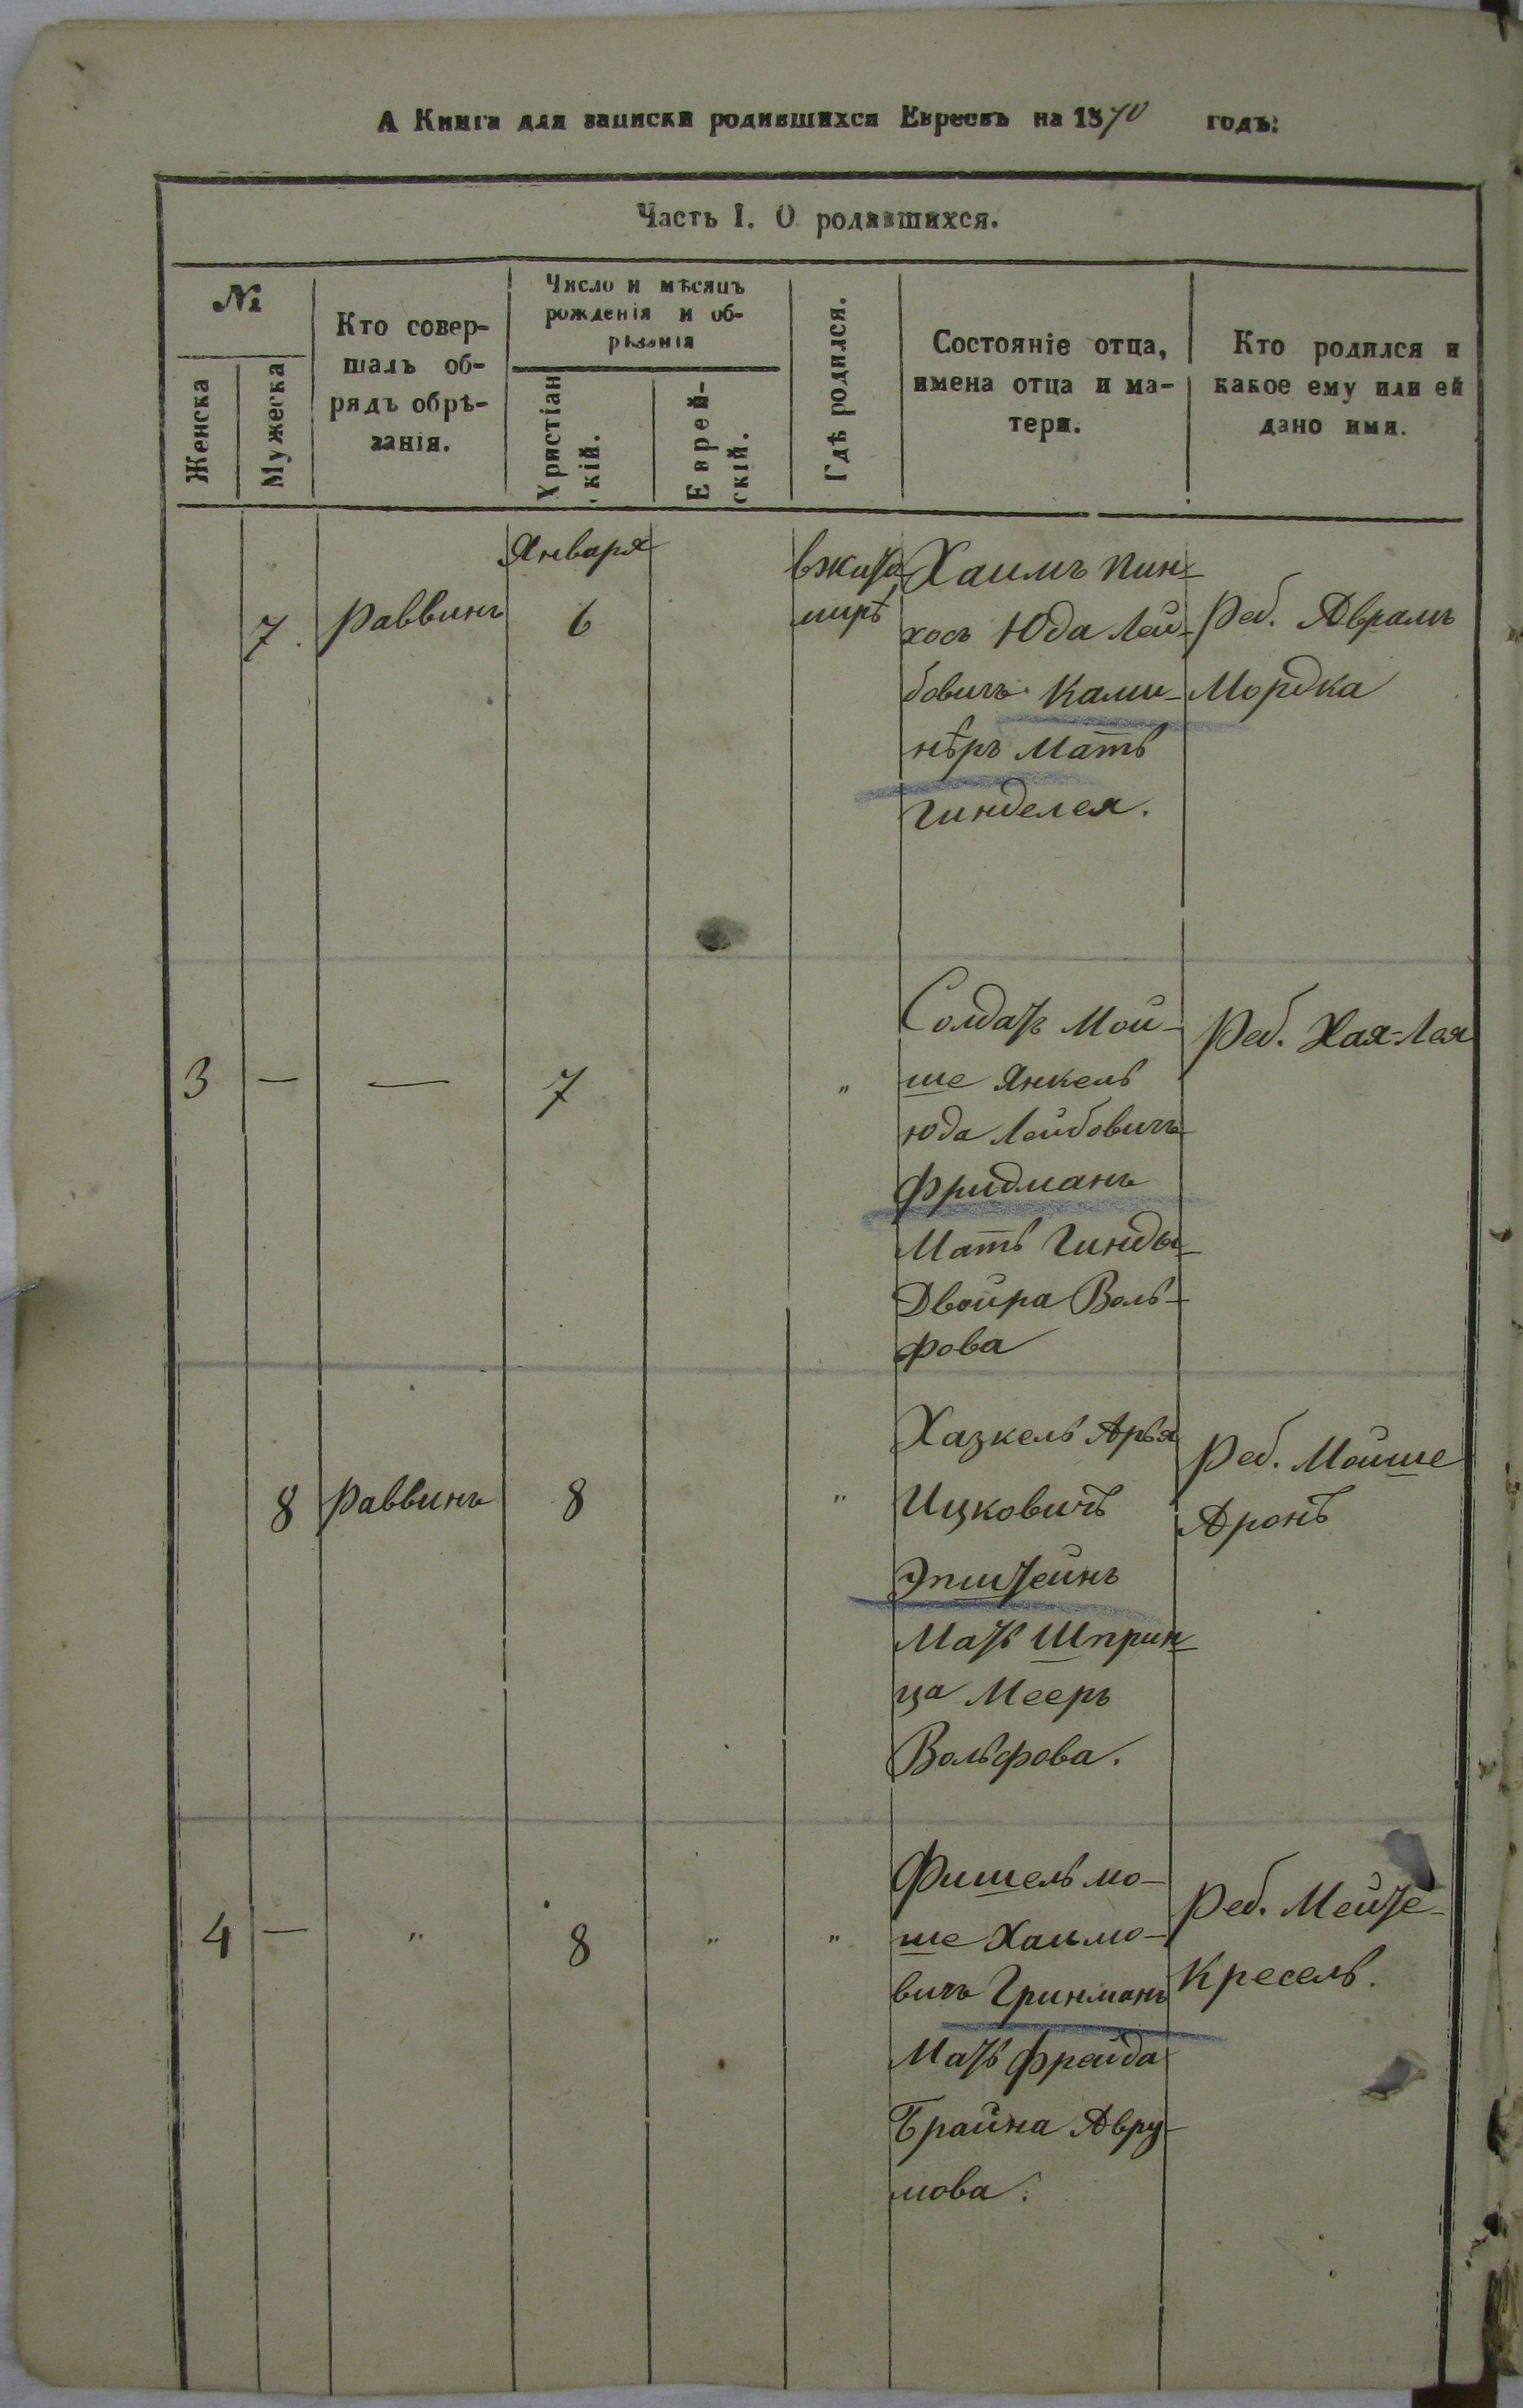 А Книга для записки родившихся Евреевъ на 1870 годъ:
Часть I. О родившихся.
№
Женска
Мужеска
Кто совер-
шалъ об-
рядъ обрѣ-
занія.
Число и мѣсяцъ
рожденія и об-
рѣзанія
Христіан
скій.
Еврей-
скій.
Гдѣ родился.
Состояніе отца,
имена отца и ма-
тери.
Кто родился и
какое ему или ей
дано имя.
7.
Раввинъ
Января
6
в Жито
мирѣ
Хаимъ Пин-
хосъ Юда Лей-
бовичъ Ками-
нѣръ Мать
Гинделея.
Реб. Аврамъ
Мордка
3 — —
7
"
Солдатъ Мой-
ше Янкель
Юда Лейбовичъ
Фридманъ
Мать Гинды-
Двойра Воль-
фова
Реб. Хая-Лея
8
Раввинъ
8
"
Хазкель Арья
Ицковичъ
Эпштейнъ
Мать Шприн-
ца Мееръ
Вольфова.
Реб. Мойше
Аронъ
4 — "
8
" "
Фишель Мо-
ше Хаимо-
вичъ Гринманъ
Мать Фрейда
Брайна Авру-
мова.
Реб. Мейте-
Кресель.